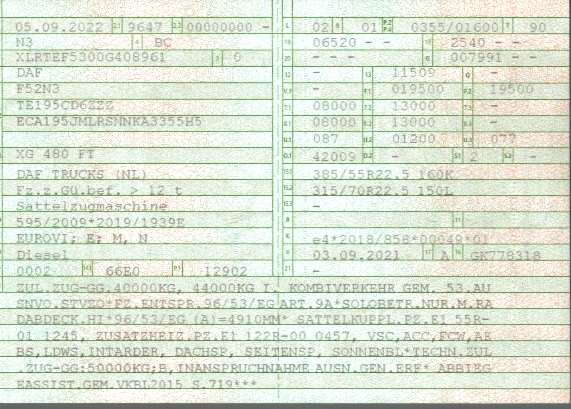 05.09.2022 9647 00000000 - L 02 01 0355/01600 90
N3 BC 06520 - - 2540 - -
XLRTEF5300G408961 0 - - - 007991 - -
DAF - 11509 -
F52N3 - 019500 19500
TE195CD6ZZZ 08000 13000 -
ECA195JMLRSNNKA3355H5 08000 13000 -
087 01200 077
XG 480 FT 42009 - 2 -
DAF TRUCKS (NL) 385/55R22.5 160K
Fz.z.Gü.bef. > 12 t 315/70R22.5 150L
Sattelzugmaschine -
595/2009*2019/1939E
EUROVI; E; M, N e4*2018/858*00049*01
Diesel 03.09.2021 A GK778318
0002 66E0 12902 -
ZUL.ZUG-GG.40000KG, 44000KG I. KOMBIVERKEHR GEM. 53.AU
SNVO.STVZO*FZ.ENTSPR.96/53/EG ART.9A*SOLOBETR.NUR.M.RA
DABDECK.HI*96/53/EG (A)=4910MM* SATTELKUPPL.PZ.E1 55R-
01 1245, ZUSATZHEIZ.PZ.E1 122R-00 0457, VSC,ACC,FCW,AE
BS,LDWS,INTARDER, DACHSP, SEITENSP, SONNENBL*TECHN.ZUL
.ZUG-GG:50000KG;B,INANSPRUCHNAHME AUSN.GEN.ERF* ABBIEG
EASSIST.GEM.VKBL2015 S.719***